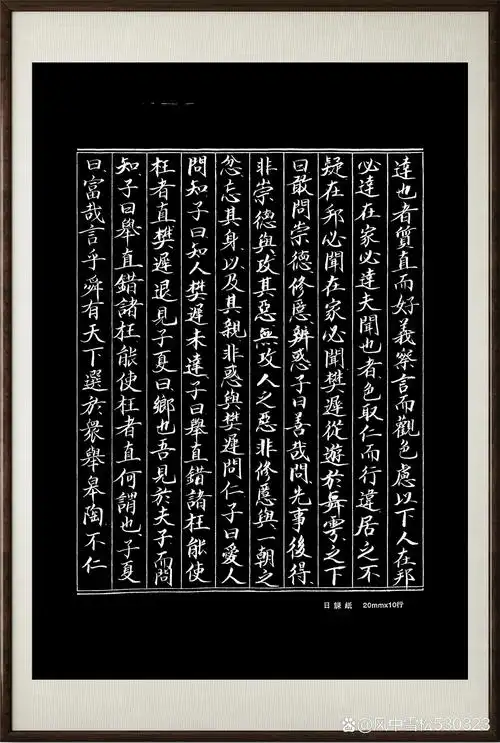 達也者質直而好義察言而觀色慮以下人在邦
必達在家必達夫聞也者色取仁而行違居之不
疑在邦必聞在家必聞樊遲從遊於舞雩之下
曰敢問崇德修慝辨惑子曰善哉問先事後得
非崇德與攻其惡無攻人之惡非修慝與一朝之
忿忘其身以及其親非惑與樊遲問仁子曰愛人
問知子曰知人樊遲未達子曰舉直錯諸枉能使
枉者直樊遲退見子夏曰鄉也吾見於夫子而問
知子曰舉直錯諸枉能使枉者直何謂也子夏
曰富哉言乎舜有天下選於衆舉皋陶不仁
日課紙 20mmx10行
@风中雪松530323